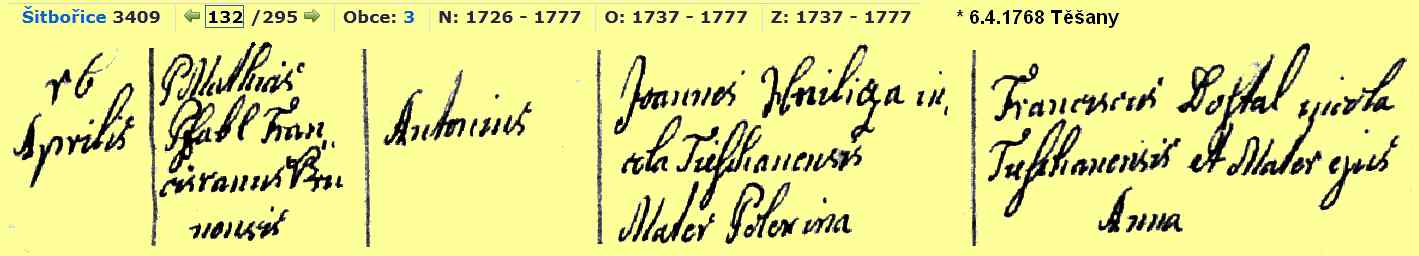 Šitbořice 3409 132 /295 Obce: 3 N: 1726 - 1777 O: 1737 - 1777 Z: 1737 - 1777 * 6.4.1768 Těšany
r 6
Aprilis
P Mathias
Pfabl Fran„
ciscanus Bru
nensis
Antonius
Joannes Hniliza in,
cola Tieschanensis
Mater
Franciscus Dostal incola
Tieschanensis et Mater ejus
Anna